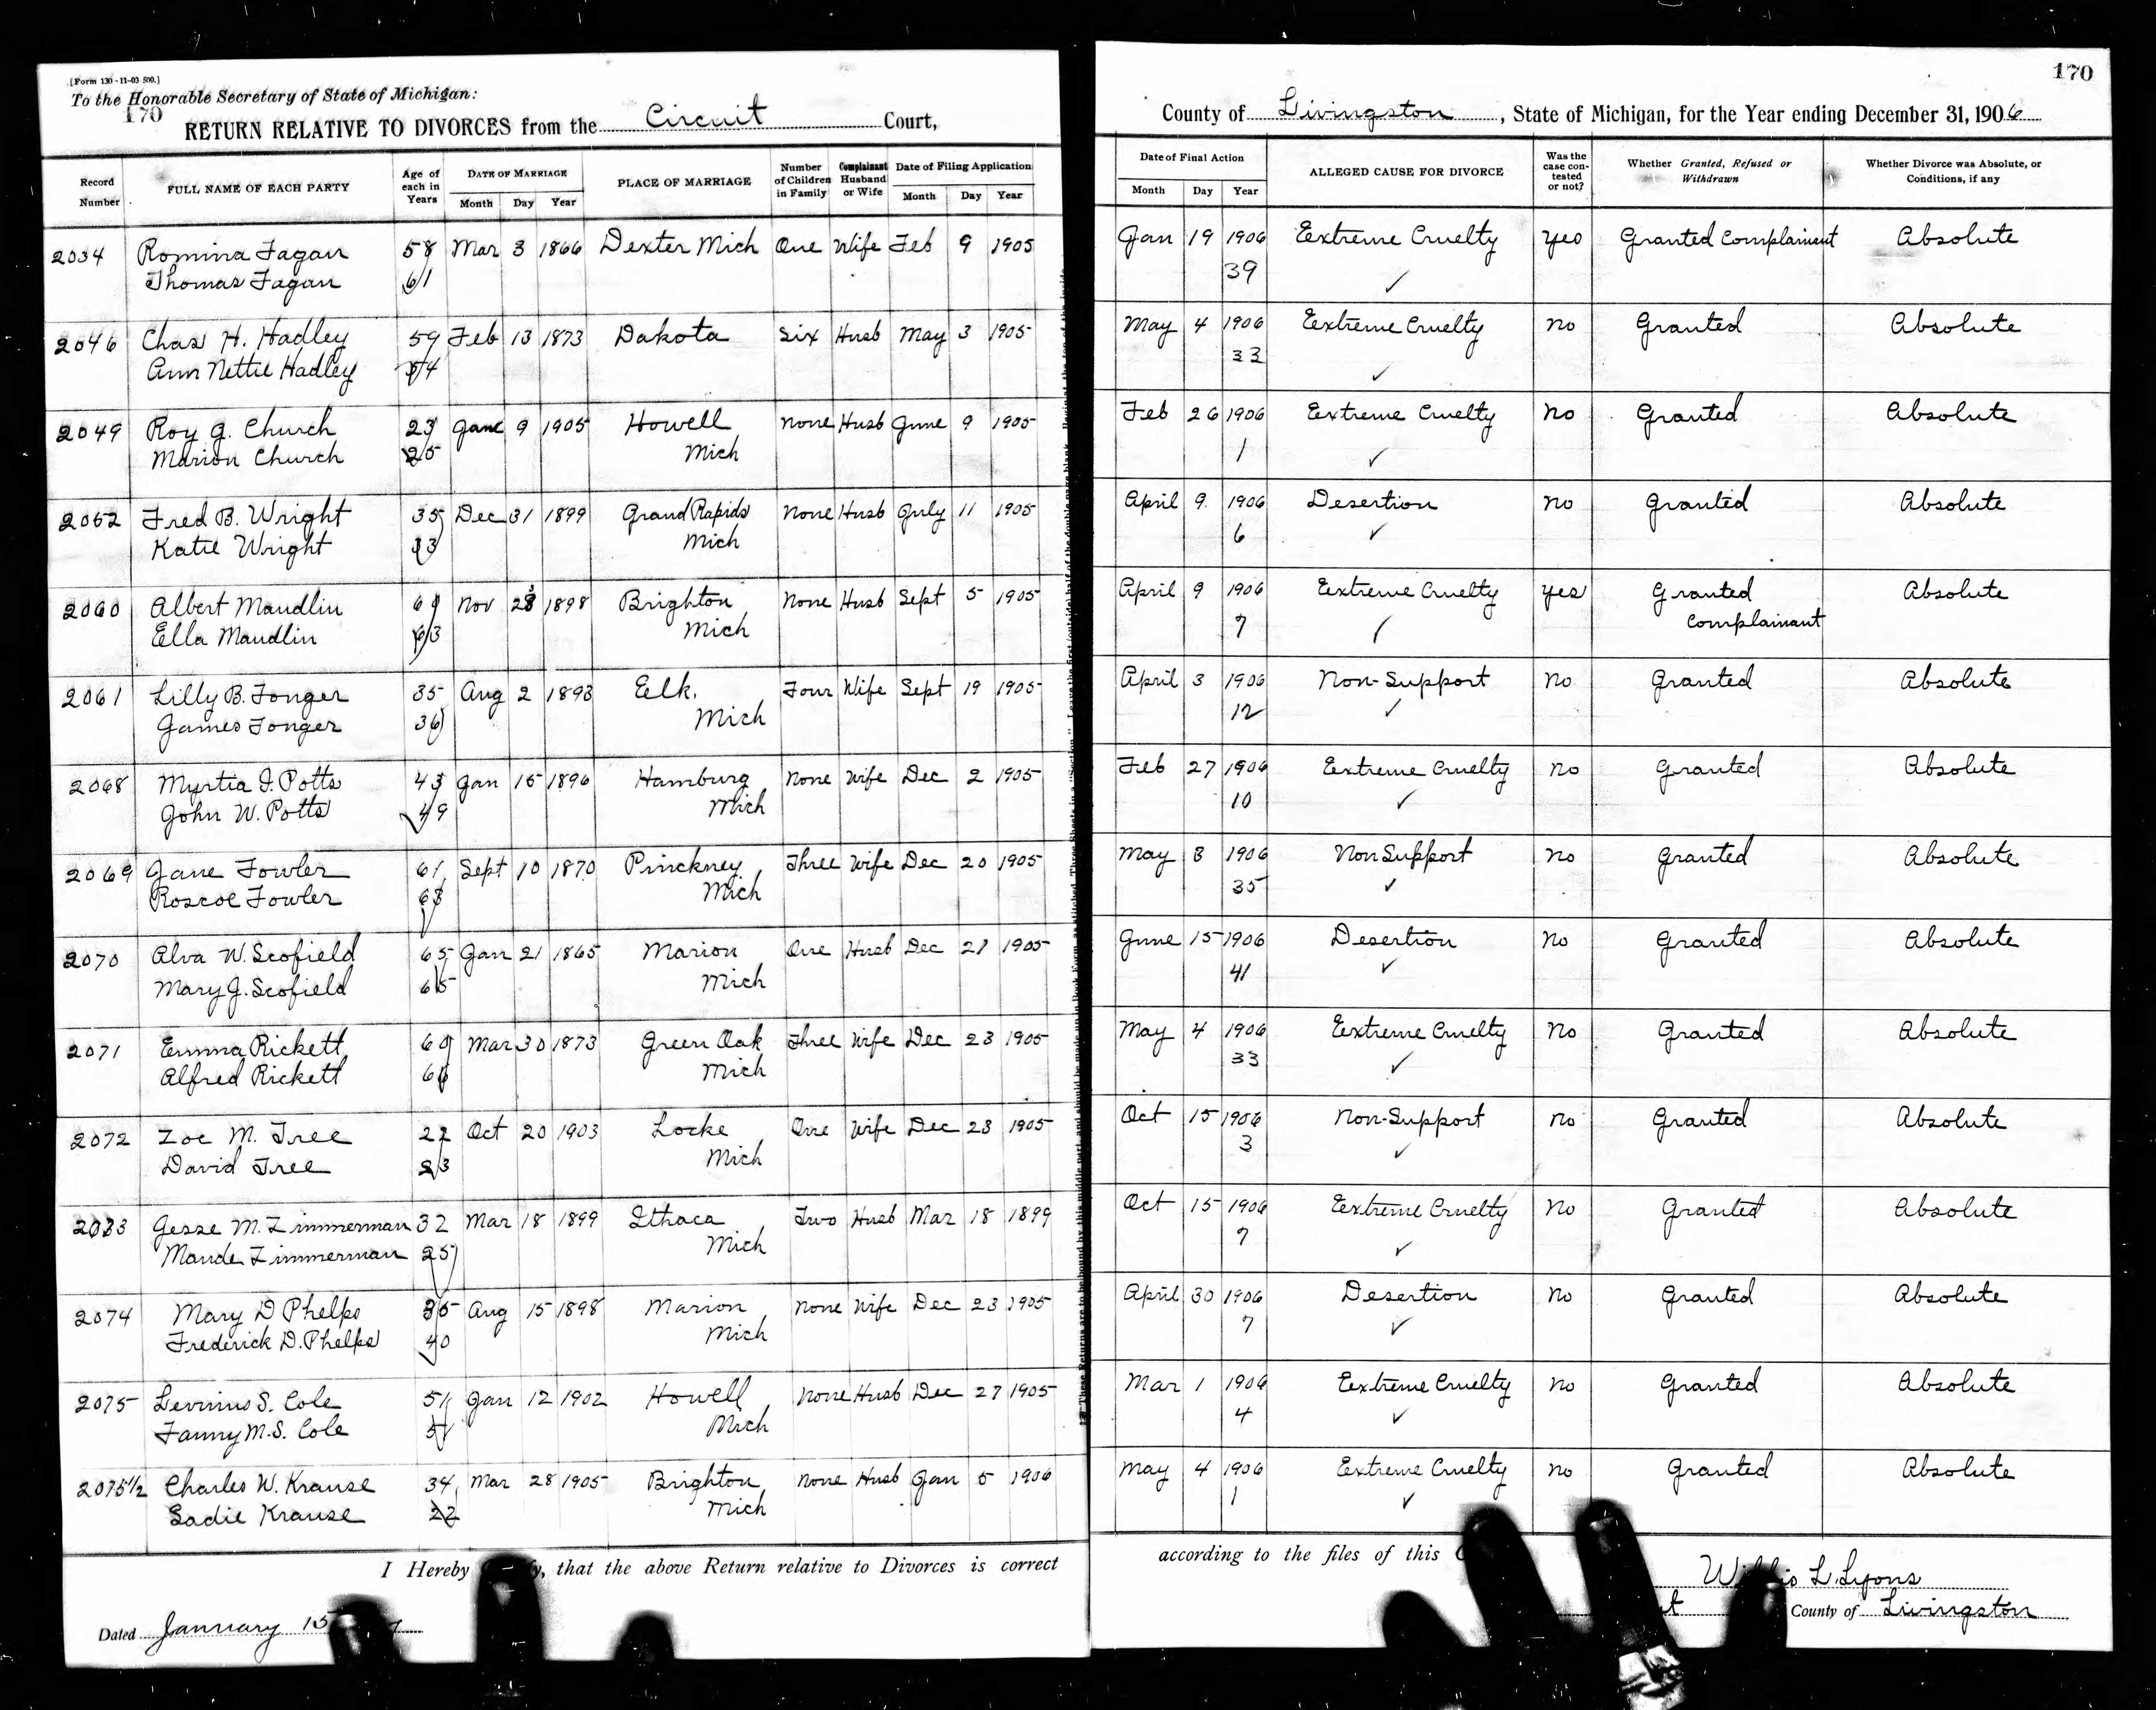 [Form 130-11-03 500.]
To the Honorable Secretary of State of Michigan:
170
RETURN RELATIVE TO DIVORCES from the Circuit Court,
Record Number FULL NAME OF EACH PARTY Age of each in Years DATE OF MARRIAGE Month Day Year PLACE OF MARRIAGE Number of Children in Family Complainant Husband or Wife Date of Filing Application Month Day Year
2034 Romina Fagan 58 Mar 3 1866 Dexter Mich One Wife Feb 9 1905
Thomas Fagan 61
2046 Chas H. Hadley 59 Feb 13 1873 Dakota Six Husb May 3 1905
Ann Nettie Hadley 54
2049 Roy G. Church 23 June 9 1905 Howell None Husb June 9 1905
Marion Church 25 Mich
2052 Fred B. Wright 35 Dec 31 1899 Grand Rapids None Husb July 11 1905
Katie Wright 33 Mich
2060 Albert Maudlin Nov 28 1898 Brighton None Husb Sept 5 1905
Ella Maudlin 63 Mich
2061 Lilly B. Fonger 35 Aug 2 1893 Elk, Four Wife Sept 19 1905
James Fonger 36 Mich
2068 Myrtia I. Potts 43 Jan 15 1896 Hamburg None Wife Dec 2 1905
John W. Potts 49 Mich
2069 Jane Fowler 61 Sept 10 1870 Pinckney Three Wife Dec 20 1905
Roscoe Fowler 63 Mich
2070 Alva W. Scofield 65 Jan 21 1865 Marion One Husb Dec 21 1905
Mary J. Scofield 65 Mich
2071 Emma Rickett 60 Mar 30 1873 Green Oak Three Wife Dec 23 1905
Alfred Rickett 66 Mich
2072 Zoe M. Tree 22 Oct 20 1903 Locke One Wife Dec 23 1905
David Tree 23 Mich
2073 Jesse M. Zimmerman 32 Mar 18 1899 Ithaca Two Husb Mar 18 1899
Maude Zimmerman 25 Mich
2074 Mary D Phelps 35 Aug 15 1898 Marion None Wife Dec 23 1905
Frederick D. Phelps 40 Mich
2075 Levinus S. Cole 51 Jan 12 1902 Howell None Husb Dec 27 1905
Fanny M.S. Cole 51 Mich
2075½ Charles W. Krause 34 Mar 28 1905 Brighton None Husb Jan 5 1906
Sadie Krause 22 Mich
I Hereby that the above Return relative to Divorces is correct
Dated January 15
170
County of Livingston, State of Michigan, for the Year ending December 31, 1906
Date of Final Action Month Day Year ALLEGED CAUSE FOR DIVORCE Was the case contested or not? Whether Granted, Refused or Withdrawn Whether Divorce was Absolute, or Conditions, if any
Jan 19 1906 Extreme Cruelty Yes Granted Complainent Absolute
39 ✓
May 4 1906 Extreme Cruelty No Granted Absolute
33 ✓
Feb 26 1906 Extreme Cruelty No Granted Absolute
1 ✓
April 9 1906 Desertion No Granted Absolute
6 ✓
April 9 1906 Extreme Cruelty Yes Granted Absolute
7 ✓ Complainant
April 3 1906 Non-Support No Granted Absolute
12 ✓
Feb 27 1906 Extreme Cruelty No Granted Absolute
10 ✓
May 8 1906 Non Support No Granted Absolute
35 ✓
June 15 1906 Desertion No Granted Absolute
41 ✓
May 4 1906 Extreme Cruelty No Granted Absolute
33 ✓
Oct 15 1906 Non-Support No Granted Absolute
3 ✓
Oct 15 1906 Extreme Cruelty No Granted Absolute
7 ✓
April 30 1906 Desertion No Granted Absolute
7 ✓
Mar 1 1906 Extreme Cruelty No Granted Absolute
4 ✓
May 4 1906 Extreme Cruelty No Granted Absolute
1 ✓
according to the files of this
L. Lyons
County of Livingston